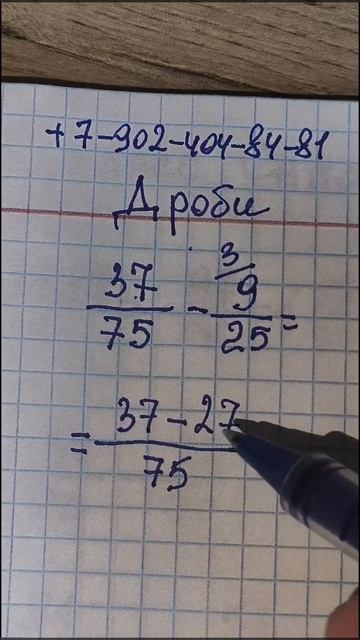 +7-902-404-84-81
Дроби
37/75 - 3/ 9/25 =
= 37-27/75